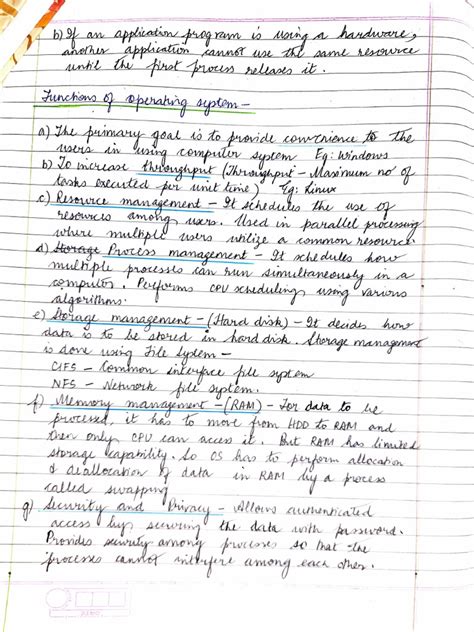 b) If an application program is using a hardware,
another application cannot use the same resource
until the first process releases it.
Functions of operating system –
a) The primary goal is to provide convenience to the
users in using computer system Eg: Windows
b) To increase throughput (Throughput – Maximum no of
tasks executed per unit time) Eg: Linux
c) Resource management – It schedules the use of
resources among users. Used in parallel processing
where multiple users utilize a common resource.
d) Storage Process management – It schedules how
multiple processes can run simultaneously in a
computer. Performs CPU scheduling using various
algorithms.
e) Storage management – (Hard disk) – It decides how
data is to be stored in hard disk. Storage management
is done using File System –
CIFS – Common interface file system
NFS – Network file system.
f) Memory management – (RAM) – For data to be
processed, it has to move from HDD to RAM and
then only CPU can access it. But RAM has limited
storage capability. So OS has to perform allocation
& deallocation of data in RAM by a process
called swapping
g) Security and Privacy – Allows authenticated
access by securing the data with password.
Provides security among processes so that the
processes cannot interfere among each other.